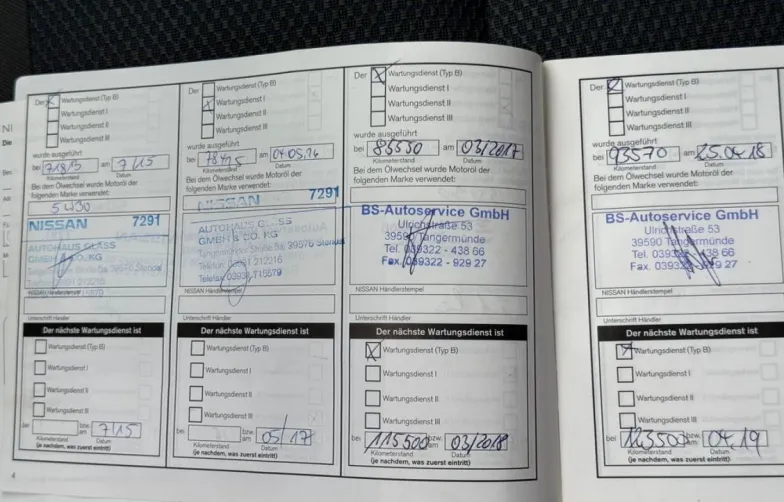 Der
Wartungsdienst (Typ B)
Wartungsdienst I
Wartungsdienst II
Wartungsdienst III
wurde ausgeführt
bei 71813 am 7/15
Kilometerstand Datum
Bei dem Ölwechsel wurde Motoröl der
folgenden Marke verwendet:
5W30
NISSAN 7291
AUTOHAUS GLASS
GMBH & CO. KG
NISSAN Händlerstempel
Unterschrift Händler
Der nächste Wartungsdienst ist
Wartungsdienst (Typ B)
Wartungsdienst I
Wartungsdienst II
Wartungsdienst III
bei bzw. am 7/15
Kilometerstand Datum
(je nachdem, was zuerst eintritt)
4
Der
Wartungsdienst (Typ B)
Wartungsdienst I
Wartungsdienst II
Wartungsdienst III
wurde ausgeführt
bei am
Kilometerstand Datum
Bei dem Ölwechsel wurde Motoröl der
folgenden Marke verwendet:
NISSAN 7291
AUTOHAUS GLASS
GMBH & CO. KG
39576 Stendal
Telefon 212216
Telefax 03931 715579
NISSAN Händlerstempel
Unterschrift Händler
Der nächste Wartungsdienst ist
Wartungsdienst (Typ B)
Wartungsdienst I
Wartungsdienst II
Wartungsdienst III
bei bzw. am 05/17
Kilometerstand Datum
(je nachdem, was zuerst eintritt)
Der
Wartungsdienst (Typ B)
Wartungsdienst I
Wartungsdienst II
Wartungsdienst III
wurde ausgeführt
bei 85550 am 03/2017
Kilometerstand Datum
Bei dem Ölwechsel wurde Motoröl der
folgenden Marke verwendet:
BS-Autoservice GmbH
Ulrichstraße 53
39590 Tangermünde
Tel. 039322 - 438 66
Fax. 039322 - 929 27
NISSAN Händlerstempel
Unterschrift Händler
Der nächste Wartungsdienst ist
Wartungsdienst (Typ B)
Wartungsdienst I
Wartungsdienst II
Wartungsdienst III
bei 115500 bzw. am 03/2018
Kilometerstand Datum
(je nachdem, was zuerst eintritt)
Der
Wartungsdienst (Typ B)
Wartungsdienst I
Wartungsdienst II
Wartungsdienst III
wurde ausgeführt
bei 93570 am 25.04.18
Kilometerstand Datum
Bei dem Ölwechsel wurde Motoröl der
folgenden Marke verwendet:
BS-Autoservice GmbH
Ulrichstraße 53
39590 Tangermünde
Tel. 039322 - 438 66
Fax. 039322 - 929 27
NISSAN Händlerstempel
Unterschrift Händler
Der nächste Wartungsdienst ist
Wartungsdienst (Typ B)
Wartungsdienst I
Wartungsdienst II
Wartungsdienst III
bei bzw. am 04.19
Kilometerstand Datum
(je nachdem, was zuerst eintritt)